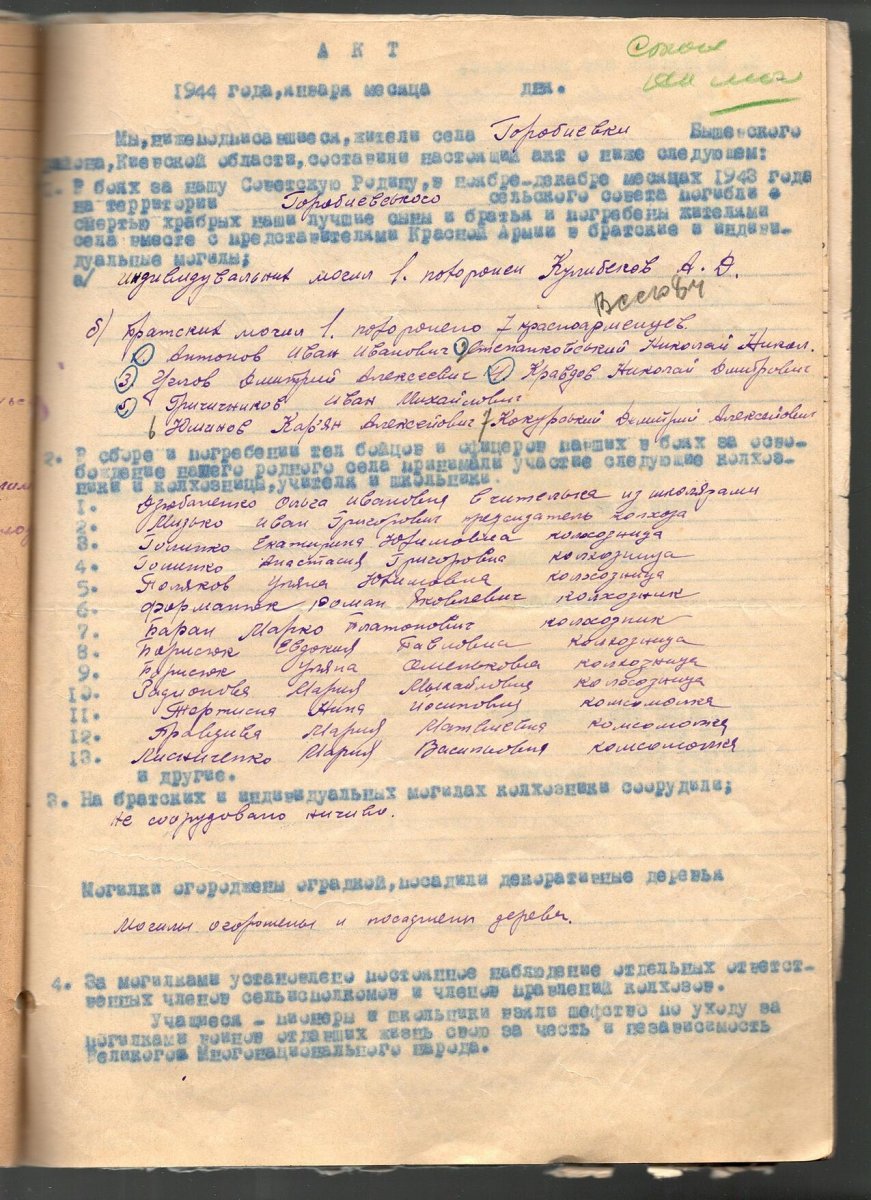 А К Т
1944 года, января месяца дня.
Мы, нижеподписавшиеся, жители села Горобиевки Бышевского
района, Киевской области, составили настоящий акт о ниже следующем:
1. В боях за нашу Советскую Родину, в ноябре-декабре месяцах 1943 года
на территории Горобиевського сельского совета погибли
смертью храбрых наши лучшие сыны и братья и погребены жителями
села вместе с представителями Красной Армии в братские и индиви-
дуальные могилы;
а/ индивидувальних могил 1. похоронен Кулибеков А. Д.
б) братских могил 1. похоронено 7 красноармейцев.
1. Антонов Иван Иванович 2 Николай Никол.
3. Углов Дмитрий Алексеевич 4. Кравцов Николай Дмитрович
5. Гричичников Иван Михайлович
6 Юминов Кар'ян Алексейович 7 Кокурський Дмитрий Алексейович
2. В сборе и погребении тел бойцов и офицеров павших в боях за осво-
бождение нашего родного села принимали участие следующие колхоз-
ники и колхозницы, учителя и школьники
1. Дзюбаленко Ольга Ивановна вчителька из школярами
2. Мизько Иван Григорович председатель колхоза
3. Голипко Екатирина Юхимовна колхозница
4. Голипко Анастасия Григоровна колхозница
5. Поляков Уляна Юхимовна колхозница
6. Форманюк Роман Яковлевич колхозник
7. Баран Марко Платонович колхозник
8. Борисюк Евдокия Павловна колхозница
9. Борисюк Уляна Омельковна колхозница
10. Мария Михайловна колхозница
11. Нина Иосиповна комсомолка
12. Правдива Мария Матвиевна комсомолка
13. Лисниченко Мария Василовня комсомолка
и другие.
3. На братских и индивидуальных могилах колхозники соорудили;
не соорудовано ничиво.
Могилки огорожены оградкой, посадили декоративные деревья
Могилы огорожены и посаджени дерева.
4. За могилками установлено постоянное наблюдение отдельных ответст-
венных членов сельисполкомов и членов правлений колхозов.
Учащиеся – пионеры и школьники взяли шефство по уходу за
могилками воинов отдавших жизнь свою за честь и независимость
Великого Многонационального народа.